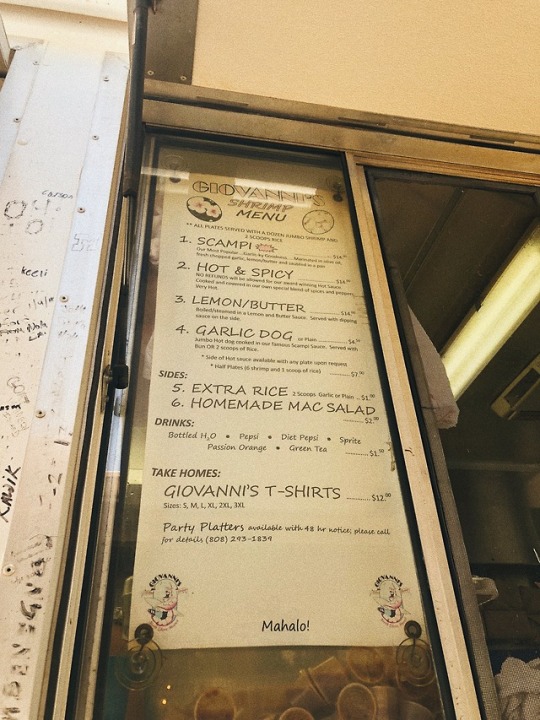 GIOVANNI'S
SHRIMP
MENU
** ALL PLATES SERVED WITH A DOZEN JUMBO SHRIMP AND
2 SCOOPS RICE
1. SCAMPI
Our Most Popular...Garlic-ky Goodness... Marinated in olive oil,
fresh chopped garlic, lemon/butter and sautéed in a pan
2. HOT & SPICY
NO REFUNDS will be allowed for our award winning Hot Sauce
Cooked and covered in our own special blend of spices and peppers
Very Hot.
3. LEMON/BUTTER
Boiled/steamed in a Lemon and Butter Sauce. Served with dipping
sauce on the side.
4. GARLIC DOG or Plain
Jumbo Hot dog cooked in our famous Scampi Sauce. Served with
Bun OR 2 scoops of Rice.
* Side of Hot sauce available with any plate upon request
* Half Plates (6 shrimp and 1 scoop of rice) $7.00
SIDES:
5. EXTRA RICE 2 Scoops Garlic or Plain .. $1.00
6. HOMEMADE MAC SALAD
$2.00
DRINKS:
Bottled H2O • Pepsi • Diet Pepsi • Sprite
Passion Orange • Green Tea
TAKE HOMES:
GIOVANNI'S T-SHIRTS $12.00
Sizes: S, M, L, XL, 2XL, 3XL
Party Platters available with 48 hr notice; please call
for details (808) 293-1839
GIOVANNI'S
GIOVANNI'S
Mahalo!
keeli